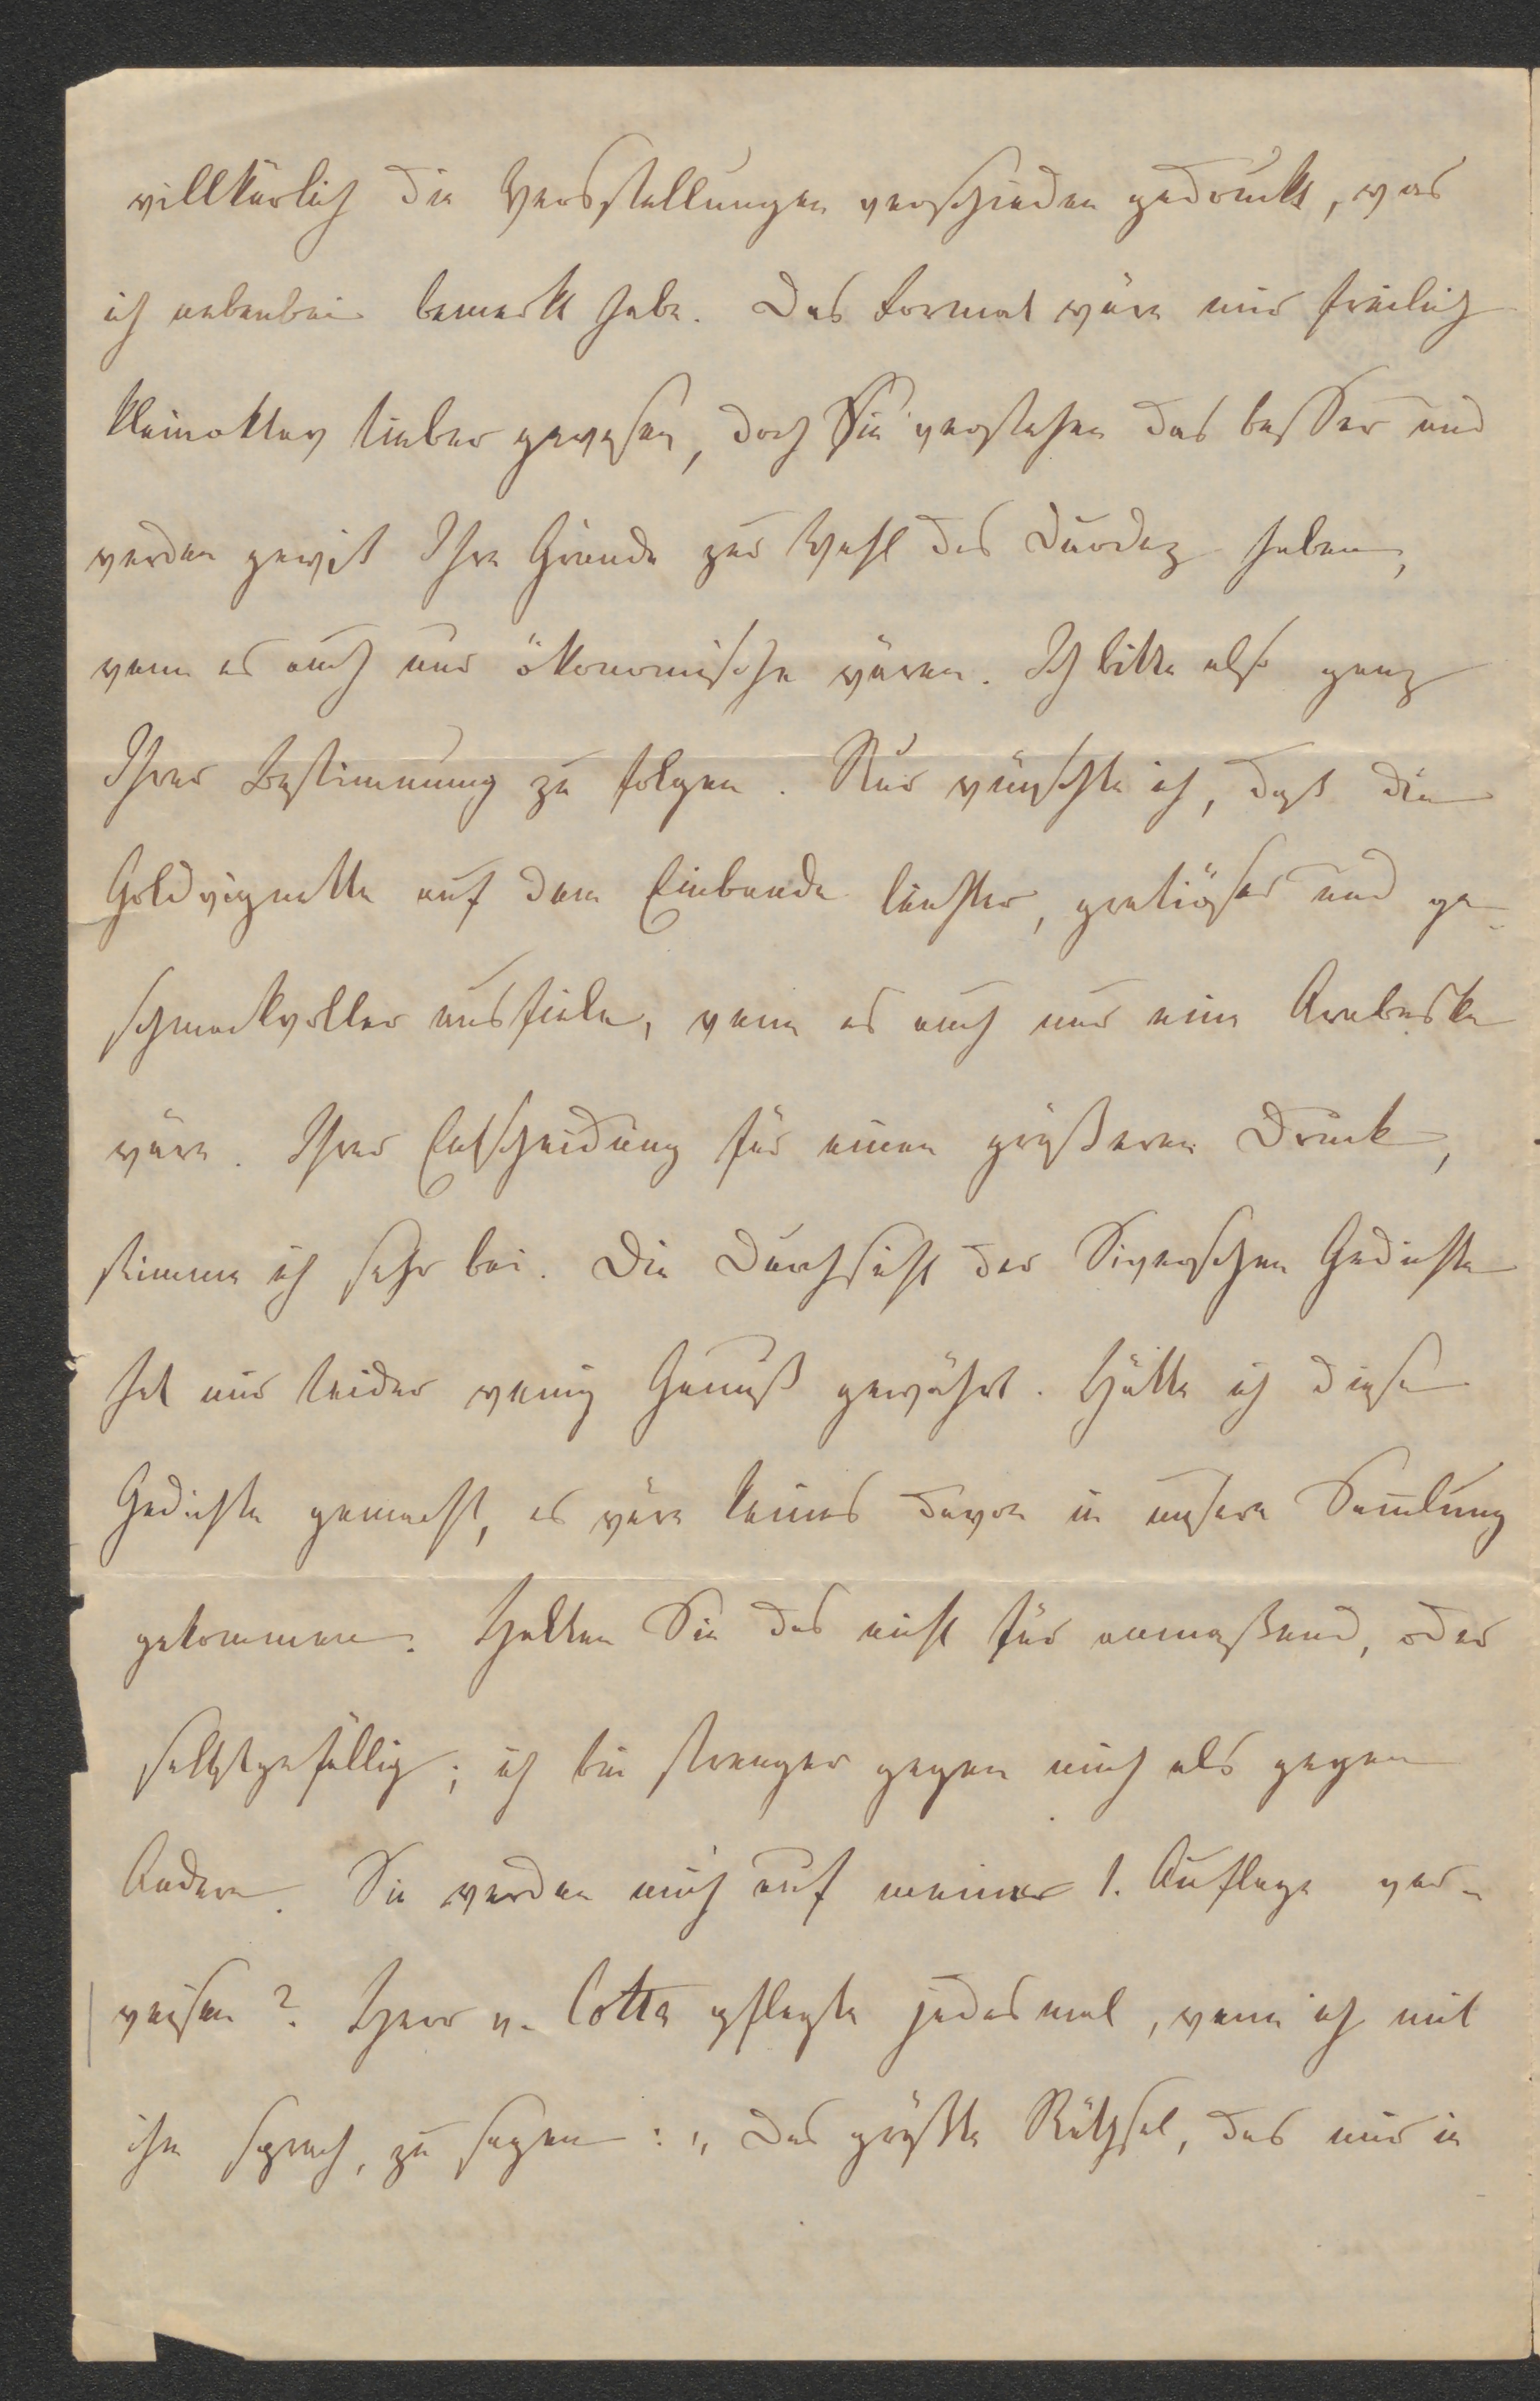 willkürlich die Versstellungen verschieden gedruckt, was
ich nebenbei bemerkt habe. Das Format wäre mir freilich
kleinoktav lieber gewesen, doch Sie verstehen das besser und
werden gewiß Ihre Gründe zur Wahl des Duodez haben,
wenn es auch nur ökonomische wären. Ich bitte also ganz
Ihrer Bestimmung zu folgen. Nur wünschte ich, daß die
Goldvignette auf dem Einbande leichter, gratiöser und ge-
schmackvoller ausfiele, wenn es auch nur eine Arabeske
wäre. Ihrer Entscheidung für einen größeren Druck,
stimme ich sehr bei. Die Durchsicht der Siverschen Gedichte
hat mir leider wenig Genuß gewährt. Hätte ich diese
Gedichte gemacht, es wäre keines davon in unsere Samlung
gekommen. Halten Sie das nicht für anmaßend, oder
selbstgefällig; ich bin strenger gegen mich als gegen
Andere. Sie werden mich auf meine 1. Auflage ver-
weisen? Herr v. Cotta pflegte jedesmal, wenn ich mit
ihm sprach, zu sagen: „Das größte Räthsel, das mir in